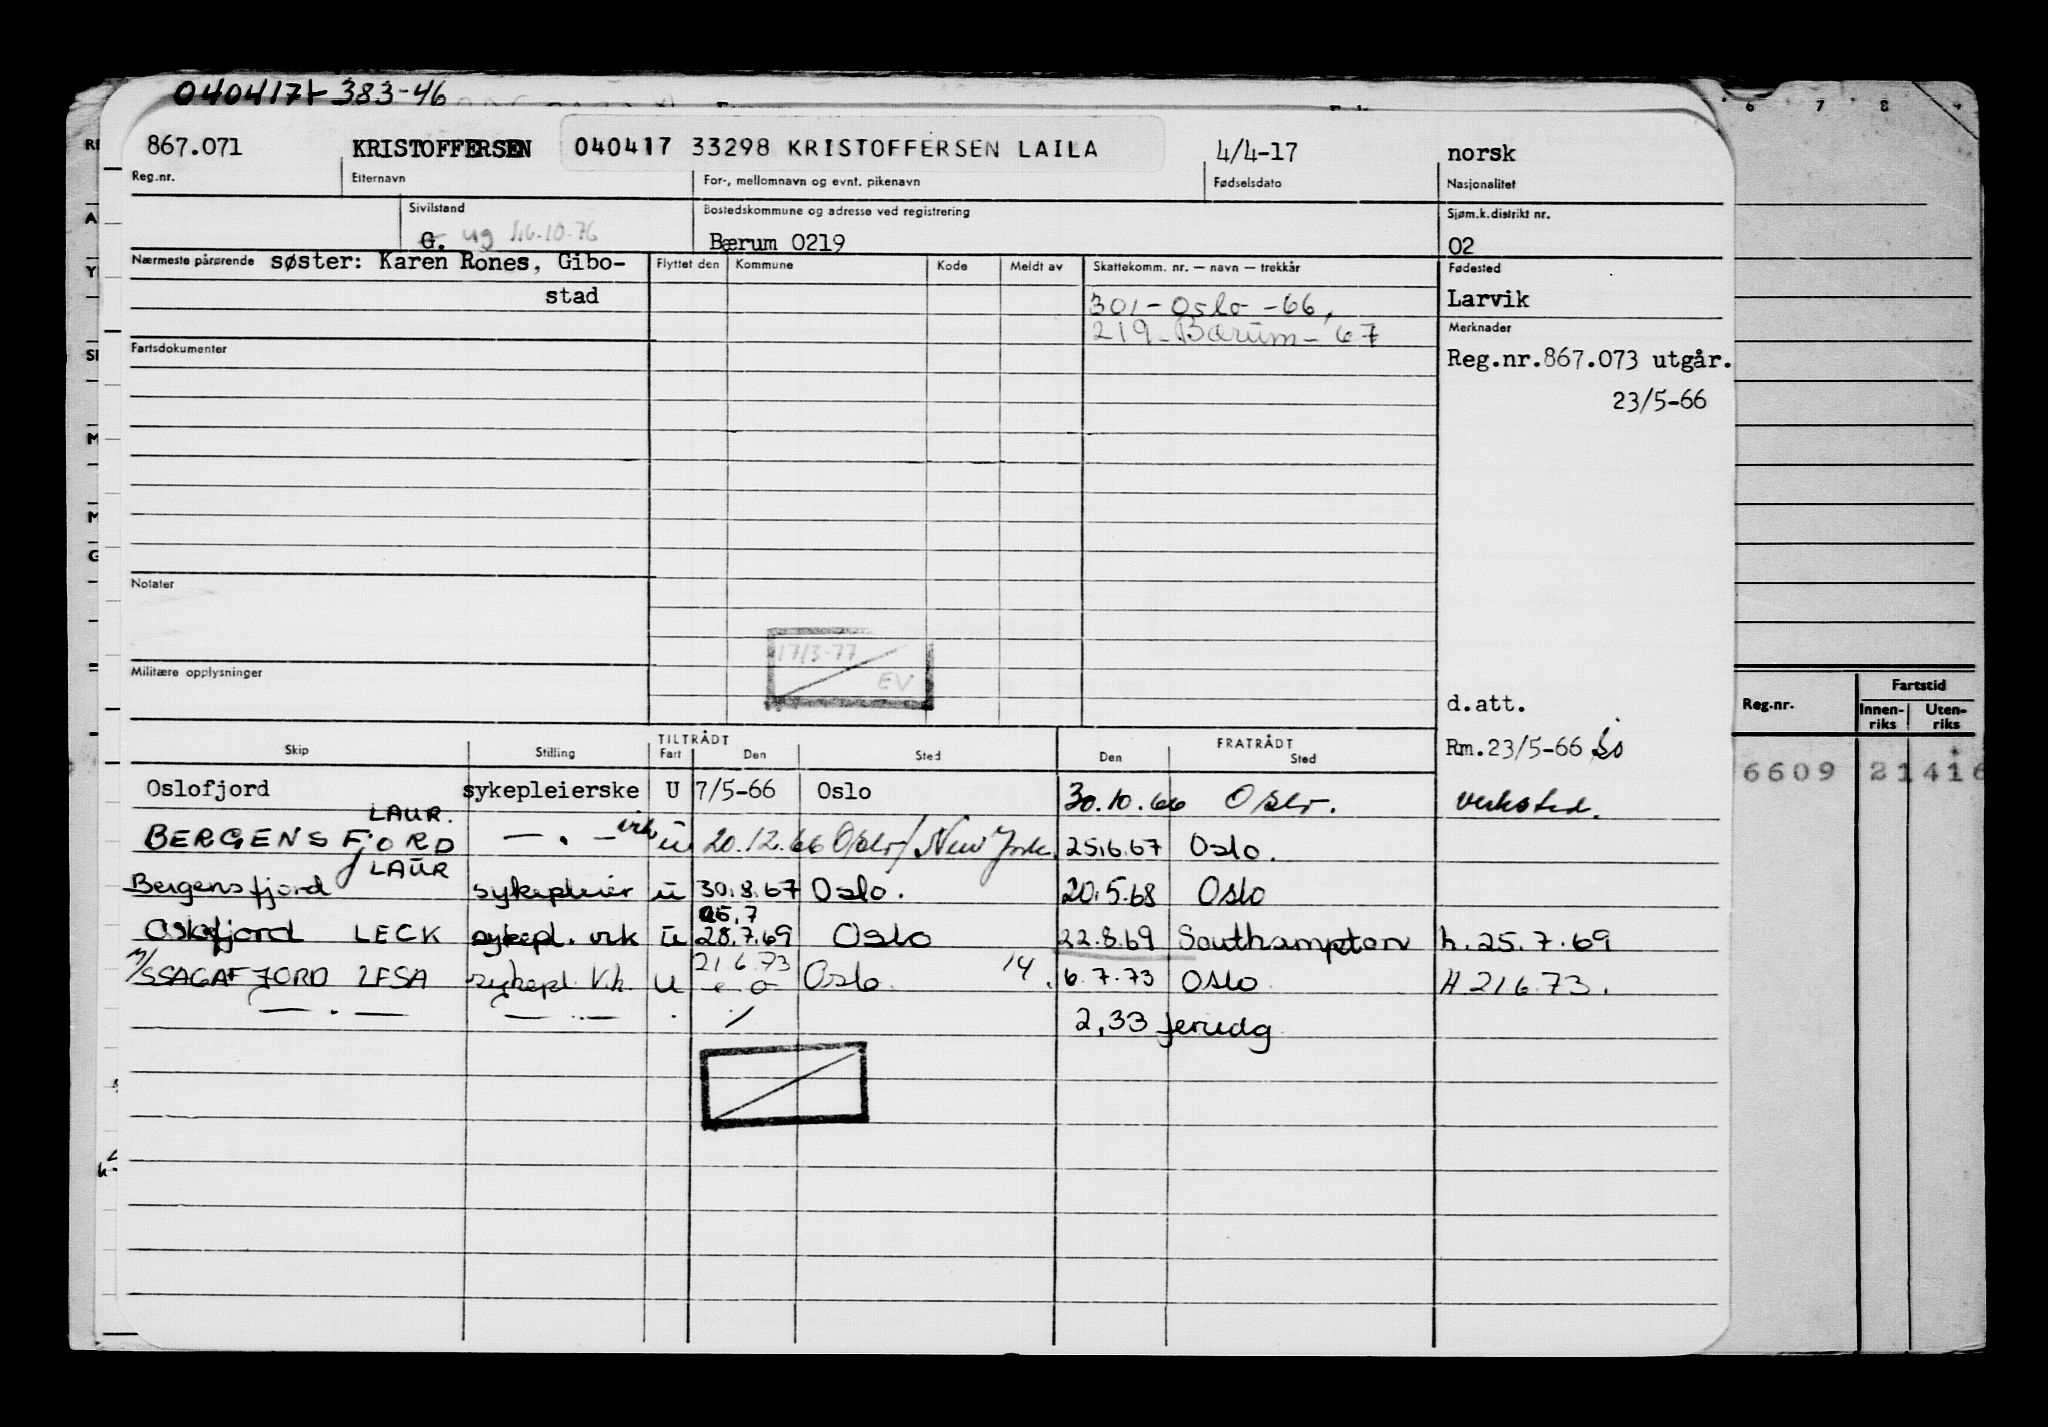 040417+383-46
867.071 KRISTOFFERSEN 040417 33298 KRISTOFFERSEN LAILA 4/4-17 norsk
Reg.nr. Etternavn For-, mellomnavn og evnt. pikenavn Fødselsdato Nasjonalitet
Sivilstand Bostedskommune og adresse ved registrering Sjøm.k.distrikt nr.
G. ug 16-10-76 Bærum 0219 02
Nærmeste pårørende søster: Karen Rones, Gibo-
stad
Flyttet den Kommune Kode Meldt av Skattekomm. nr. — navn — trekkår Fødested
301 - Oslo - 66, Larvik
219 - Bærum - 67 Merknader
Fartsdokumenter Reg.nr.867.073 utgår.
23/5-66
Notater
17/3-77
EV
Militære opplysninger
d.att.
Rm.23/5-66
TILTRÅDT FRATRÅDT
Skip Stilling Fart Den Sted Den Sted
Oslofjord sykepleierske U 7/5-66 Oslo 30.10.66 Oslo. verksted.
LAUR.
BERGENSFJORD — . — vik u 20.12.66 Oslo/New York. 25.6.67 Oslo.
LAUR
Bergensfjord sykepleier u 30.8.67 Oslo. 20.5.68 Oslo
25.7
Oslofjord LECK sykepl. vik u 28.7.69 Oslo 22.8.69 Southampton h. 25.7.69
21.6.73
M/SSAGAFJORD LFSA sykepl. Vik. u Oslo. 14. 6.7.73 Oslo H 21673.
— . — — . — . ⁒ 2,33 feriedg
6 7 8 9
Reg.nr. Fartstid
Innen-
riks Uten-
riks
6609 21416